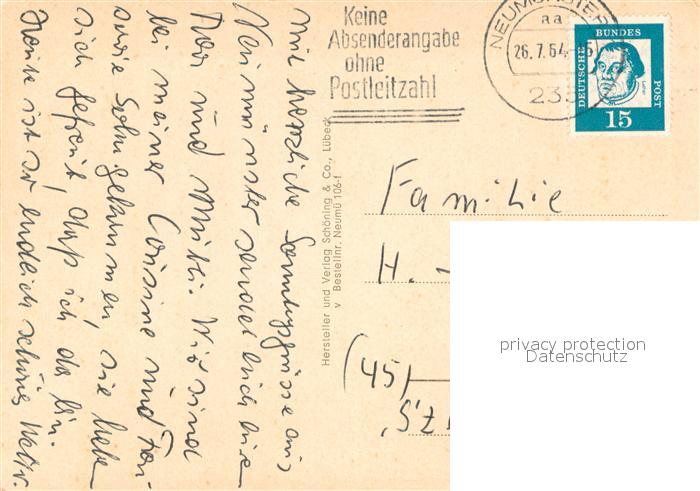 Keine
Absenderangabe
ohne
Postleitzahl
NEUMÜNSTER
aa
26.7.64
235
DEUTSCHE BUNDES POST
15
mit herzliche Sonntagsgrüsse aus
Neumünster sendet Euch Eure
und Mutti. Wir sind
bei meiner Cousine und
sowie Sohn gekommen, sie haben
sich gefreut, daß ich da bin.
Heute ist so endlich schönes Wetter.
Hersteller und Verlag Schöning & Co., Lübeck
v Bestellnr. Neumü 106-f
Familie
H. -
(45)
privacy protection
Datenschutz